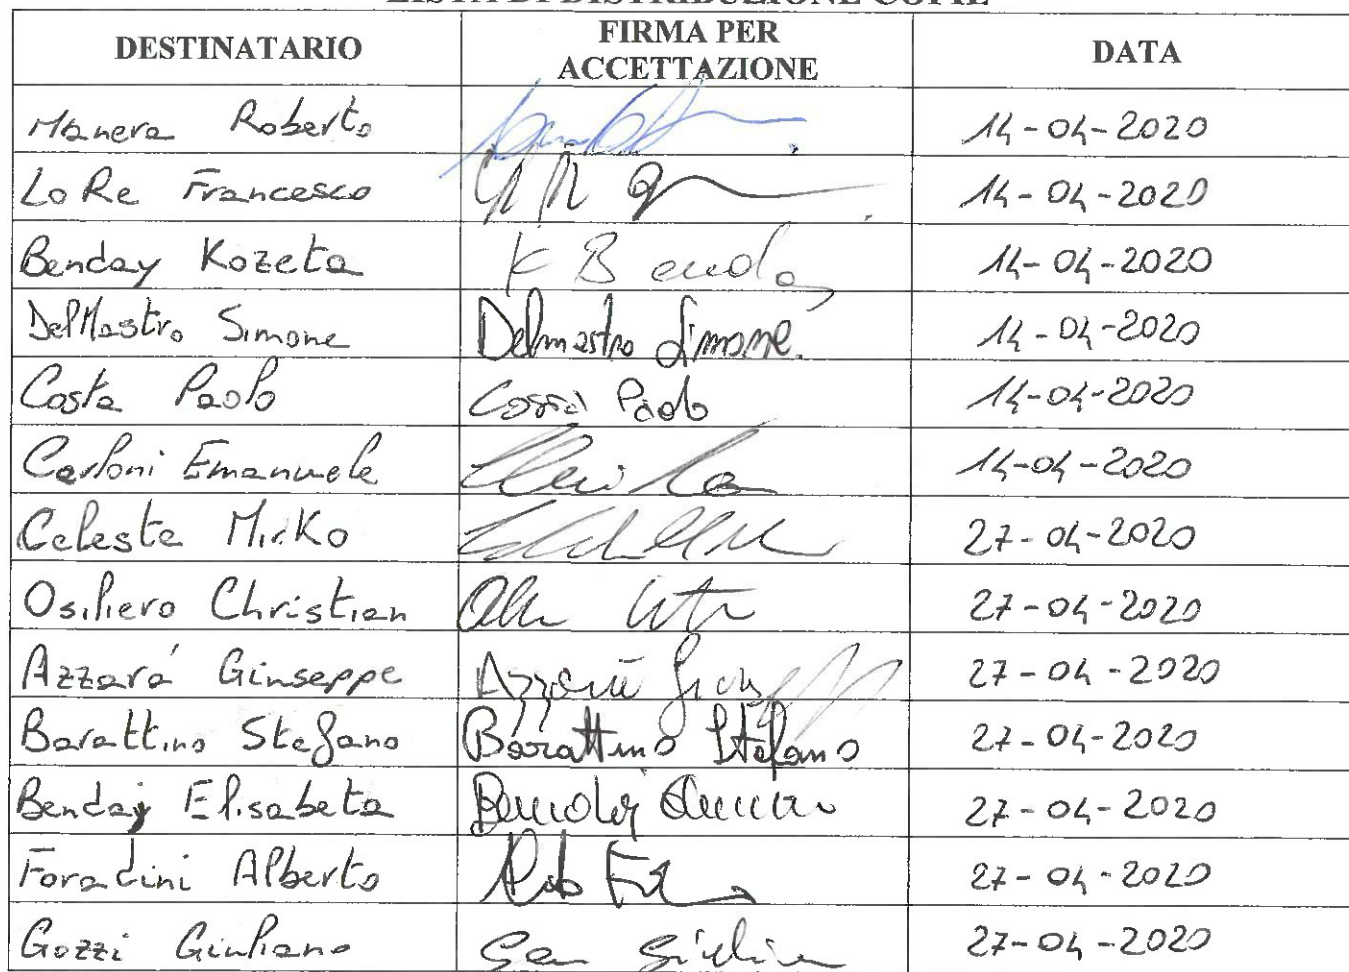 LISTA DI DISTRIBUZIONE COPIE
DESTINATARIO FIRMA PER ACCETTAZIONE DATA
Manera Roberto 14-04-2020
Lo Re Francesco 14-04-2020
Benday Kozeta K Benda 14-04-2020
DelMastro Simone Delmastro Simone. 14-04-2020
Costa Paolo Costa Paolo 14-04-2020
Carloni Emanuele 14-04-2020
Celeste Mirko 27-04-2020
Osiliero Christian 27-04-2020
Azzará Giuseppe Azzará 27-04-2020
Barattino Stefano Barattino Stefano 27-04-2020
Bendaj Elisabeta Bendaj 27-04-2020
Foradini Alberto 27-04-2020
Gozzi Giuliano 27-04-2020